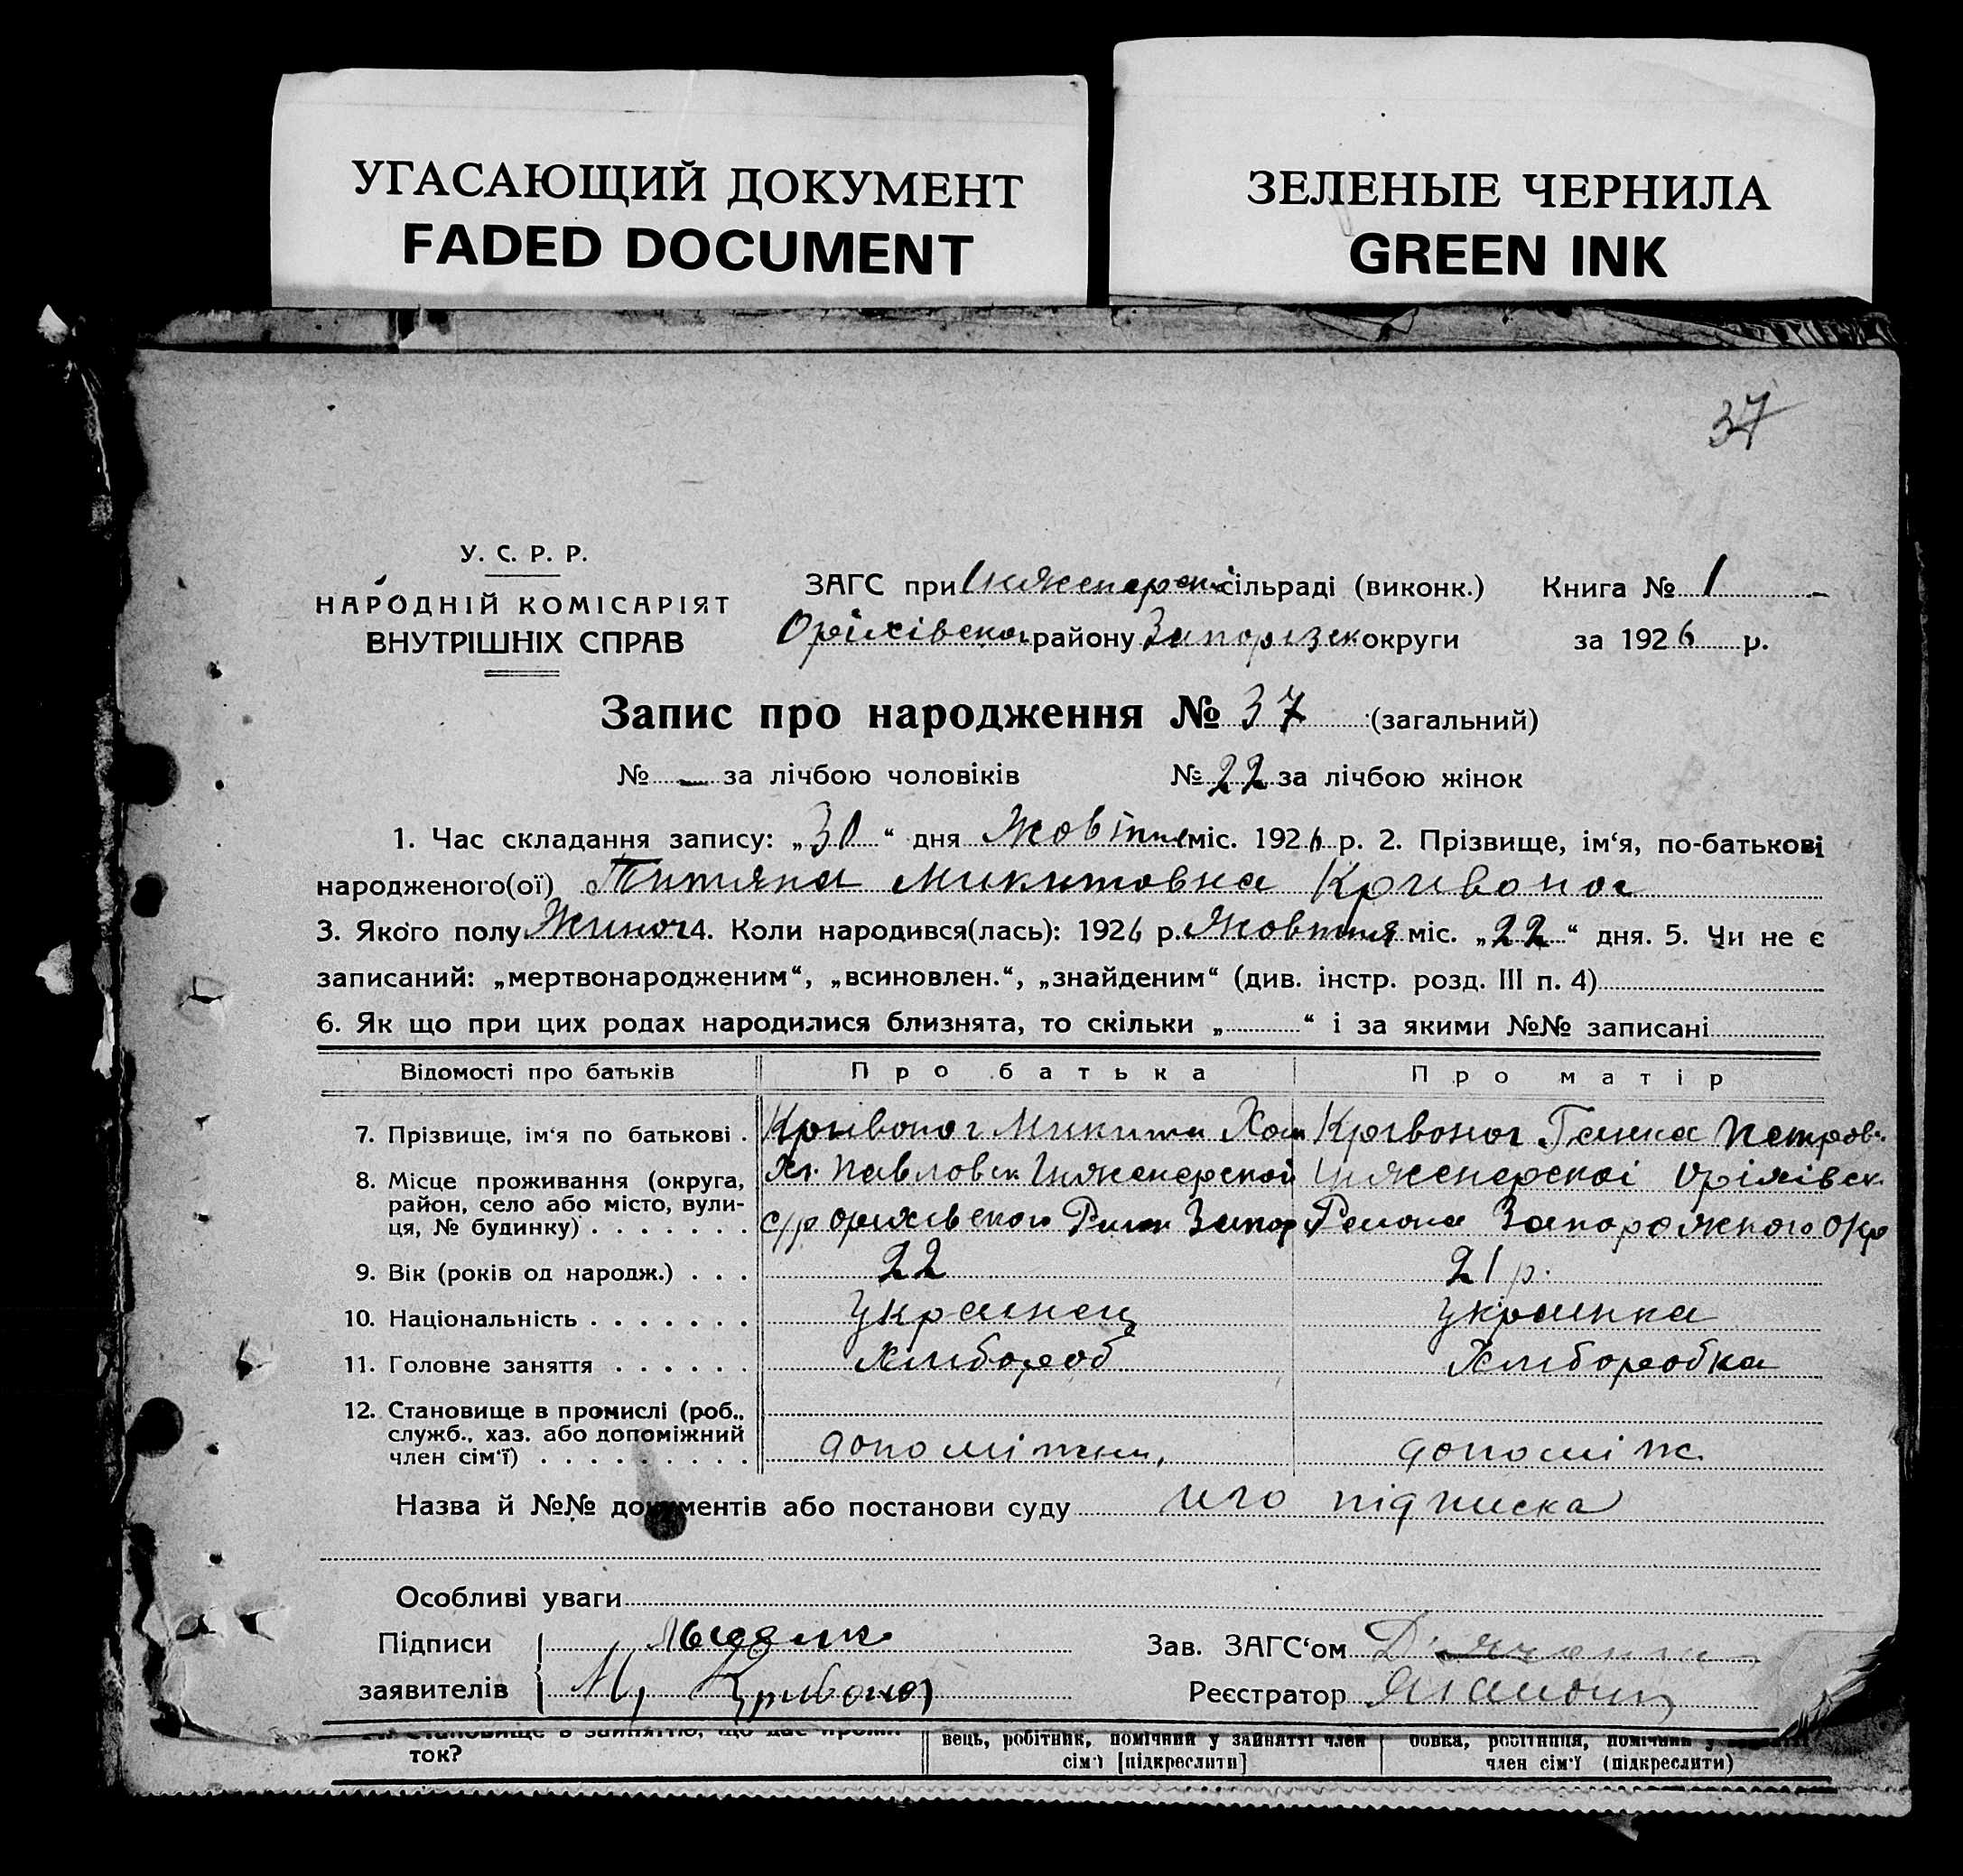 УГАСАЮЩИЙ ДОКУМЕНТ
FADED DOCUMENT
ЗЕЛЕНЫЕ ЧЕРНИЛА
GREEN INK
37
У. С. Р. Р.
НАРОДНІЙ КОМІСАРІЯТ
ВНУТРІШНІХ СПРАВ
ЗАГС при Інженерск сільраді (виконк.) Книга № 1
Оріхівског району Запорізск округи за 1926 р.
Запис про народження № 37 (загальний)
№ — за лічбою чоловіків № 22 за лічбою жінок
1. Час складання запису: „30“ дня Жовтня міс. 1926 р. 2. Прізвище, ім‘я, по-батькові
народженого(ої) Титяна Микитовна Кривоног
3. Якого полу Жиноч 4. Коли народився(лась): 1926 р. Жовтня міс. „22“ дня. 5. Чи не є
записаний: „мертвонародженим“, „всиновлен.“, „знайденим“ (див. інстр. розд. III п. 4)
6. Як що при цих родах народилися близнята, то скільки „ “ і за якими №№ записані
Відомості про батьків Про батька Про матір
7. Прізвище, ім‘я по батькові . Кривоног Микита Хом Кривоног Ганна Петров.
8. Місце проживання (округа, Хт. Павловск Інженерской Інженерскоі Оріхівск.
район, село або місто, вули-
ця, № будинку) . . . . . . . с/р Орихівского Раион Запор Раиона Запорожского Окр
9. Вік (років од народж.) . . . 22 21 р.
10. Національність . . . . . . . Украинец Украинка
11. Головне заняття . . . . . . Хлибороб Хлиборобка
12. Становище в промислі (роб.,
служб., хаз. або допоміжний
член сім‘ї) . . . . . . . . . допоміжни, допоміж.
Назва й №№ документів або постанови суду иго підписка
Особливі уваги
Підписи
заявителів М, Кривоног
Зав. ЗАГС‘ом
Реєстратор
ток?
вець, робітник, помічний у зайнятті член
сім‘ї [підкреслити]
бовка, робітниця, помічний у
член сім‘ї (підкреслити)